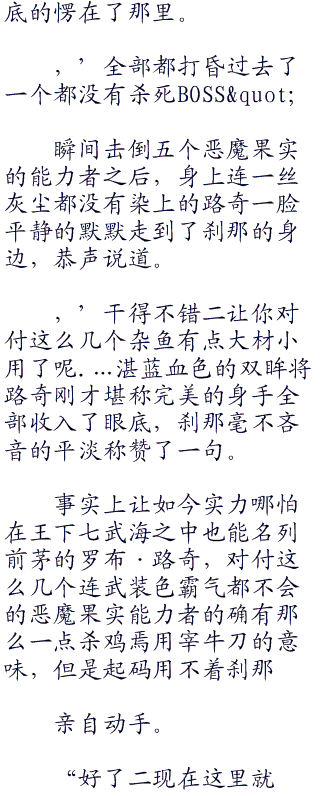 底的愣在了那里。
，’全部都打昏过去了
一个都没有杀死BOSS&quot;
瞬间击倒五个恶魔果实
的能力者之后，身上连一丝
灰尘都没有染上的路奇一脸
平静的默默走到了刹那的身
边，恭声说道。
，’干得不错二让你对
付这么几个杂鱼有点大材小
用了呢....湛蓝血色的双眸将
路奇刚才堪称完美的身手全
部收入了眼底，刹那毫不吝
音的平淡称赞了一句。
事实上让如今实力哪怕
在王下七武海之中也能名列
前茅的罗布·路奇，对付这
么几个连武装色霸气都不会
的恶魔果实能力者的确有那
么一点杀鸡焉用宰牛刀的意
味，但是起码用不着刹那
亲自动手。
“好了二现在这里就